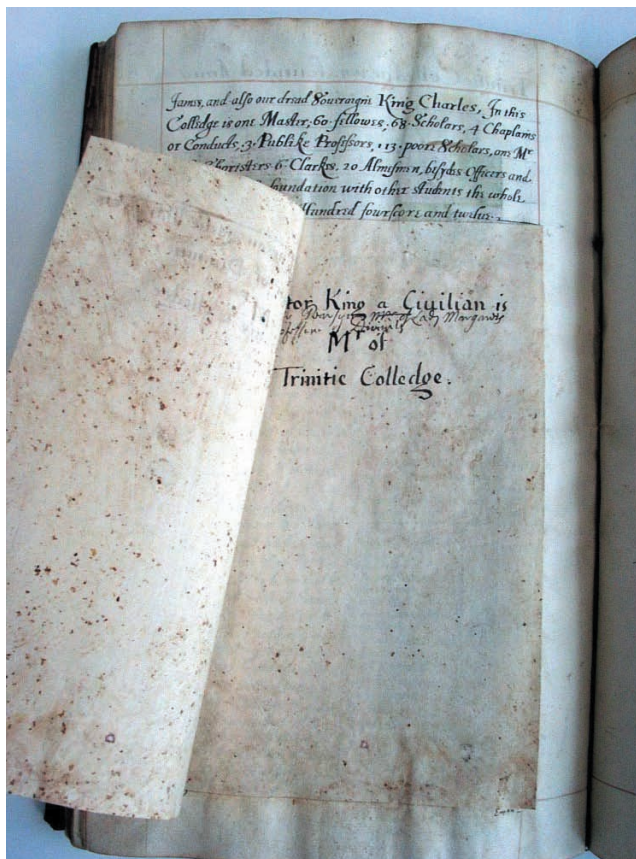 James, and also our dread Soueraigne King Charles, In this
Colledge is one Master, 60 fellowes, 68 Scholars, 4 Chaplains
or Conducts, 3. Publike Professors, 13. poore Scholars, one Mr
Choristers 6 Clarkes. 20 Almsmen, besydes Officers and
foundation with other students the whole
Hundred fourscore and twelue.
tor King a Ciuilian is
Lady Margarets
Mr of
Trinitie Colledge.